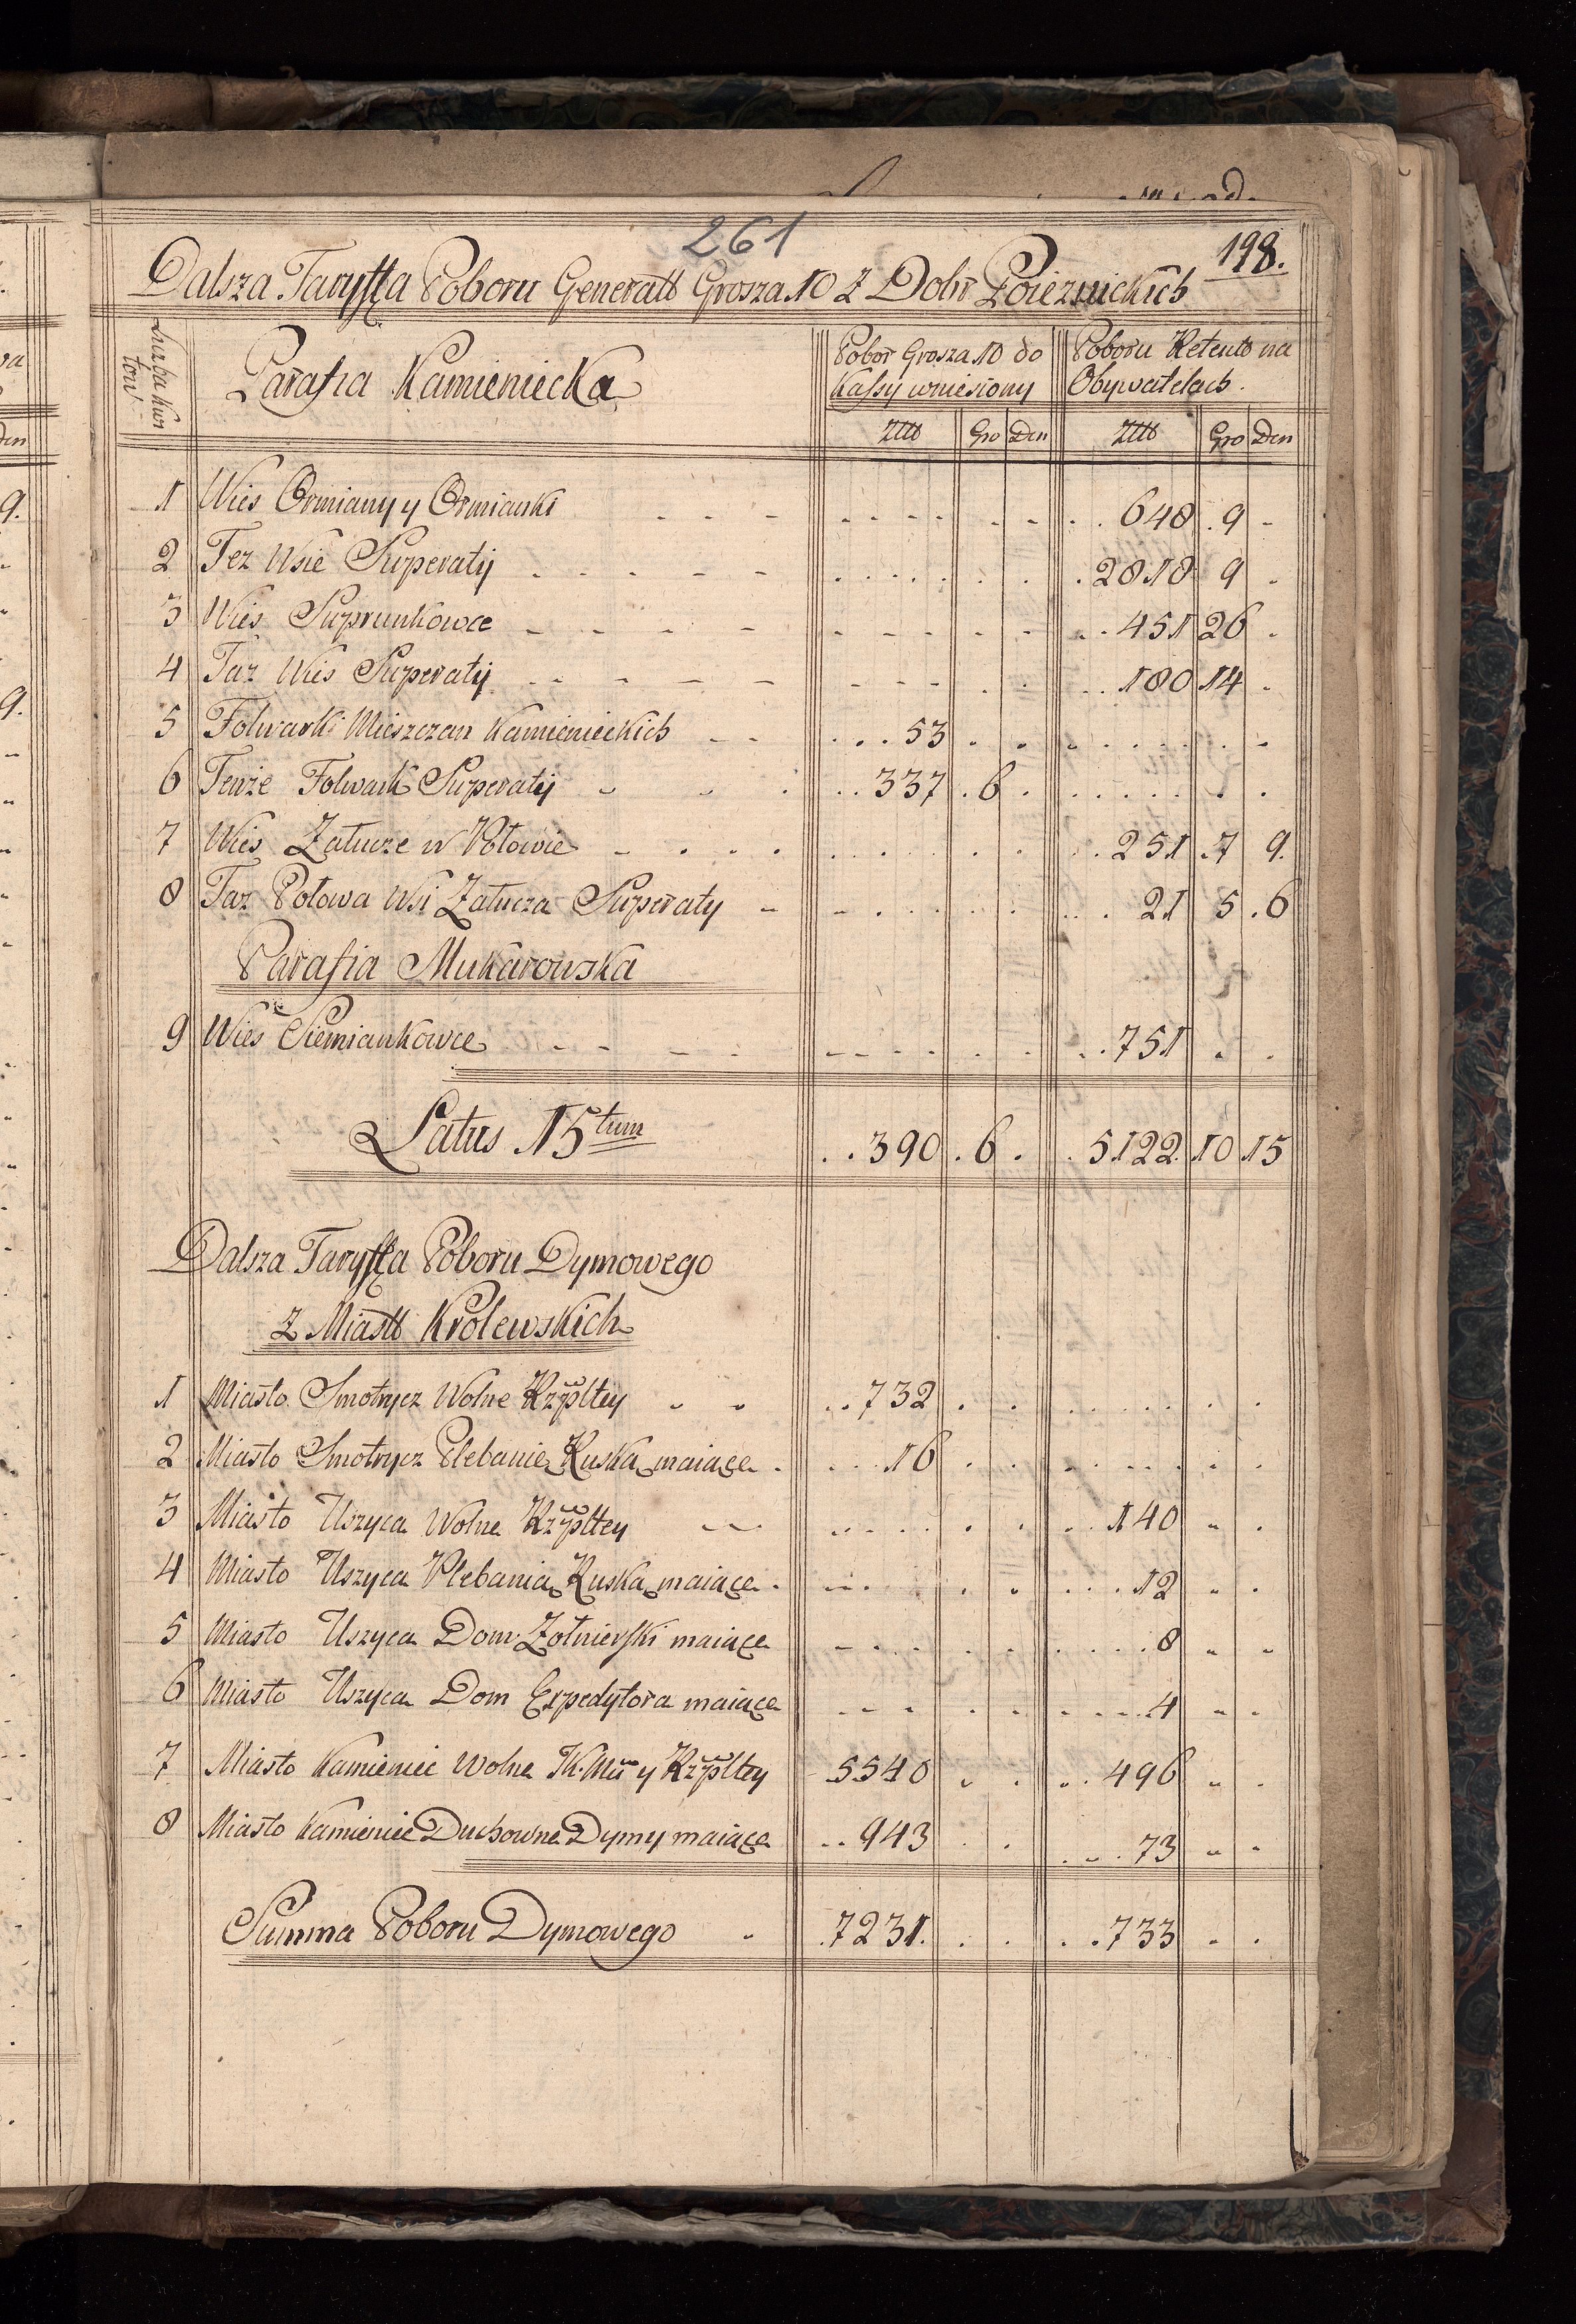 261
198.
Dalsza Taryffa Poboru Generall Grosza 10 z Dobr Poiezuickich
Liczba Kwitow
Parafia Kamieniecka
Pobor Grosza 10 do Kassy wniesiony
Poboru Retento na Obywatelach.
Złł Gro Den Złł Gro Den
1 Wies Ormiany y Ormianki 648 . 9 -
2 Tez Wsie Superaty 2818 9 .
3 Wies Suprunkowce 451 26 .
4 Taz Wies Superaty 180 14 .
5 Folwarki Mieszczan Kamienieckich 53 . .
6 Tenże Folwark Superaty 337 . 6 .
7 Wies Załucze w Połowie 251 . 7 9.
8 Taz Połowa Wsi Załucza Superaty 21 5 . 6
Parafia Mukarowska
9 Wies Siemiankowce 751 . .
Latus 15tum 390 . 6 . 5122. 10 15
Dalsza Taryffa Poboru Dymowego
z Miastt Krolewskich
1 Miasto Smotrycz Wolne Rzypltey 732 . .
2 Miasto Smotrycz Plebanie Ruską maiące 16 . .
3 Miasto Uszyca Wolne Rzypltey 140 . .
4 Miasto Uszyca Plebanią Ruską maiące 12 . .
5 Miasto Uszyca Dom Zołnierski maiące 8 . .
6 Miasto Uszyca Dom Expedytora maiące 4 . .
7 Miasto Kamieniec Wolne JK. Mci y Rzypltey 5540 . . 496 . .
8 Miasto Kamieniec Duchowne Dymy maiące 943 . . 73 . .
Summa Poboru Dymowego 7231. . . 733 . .